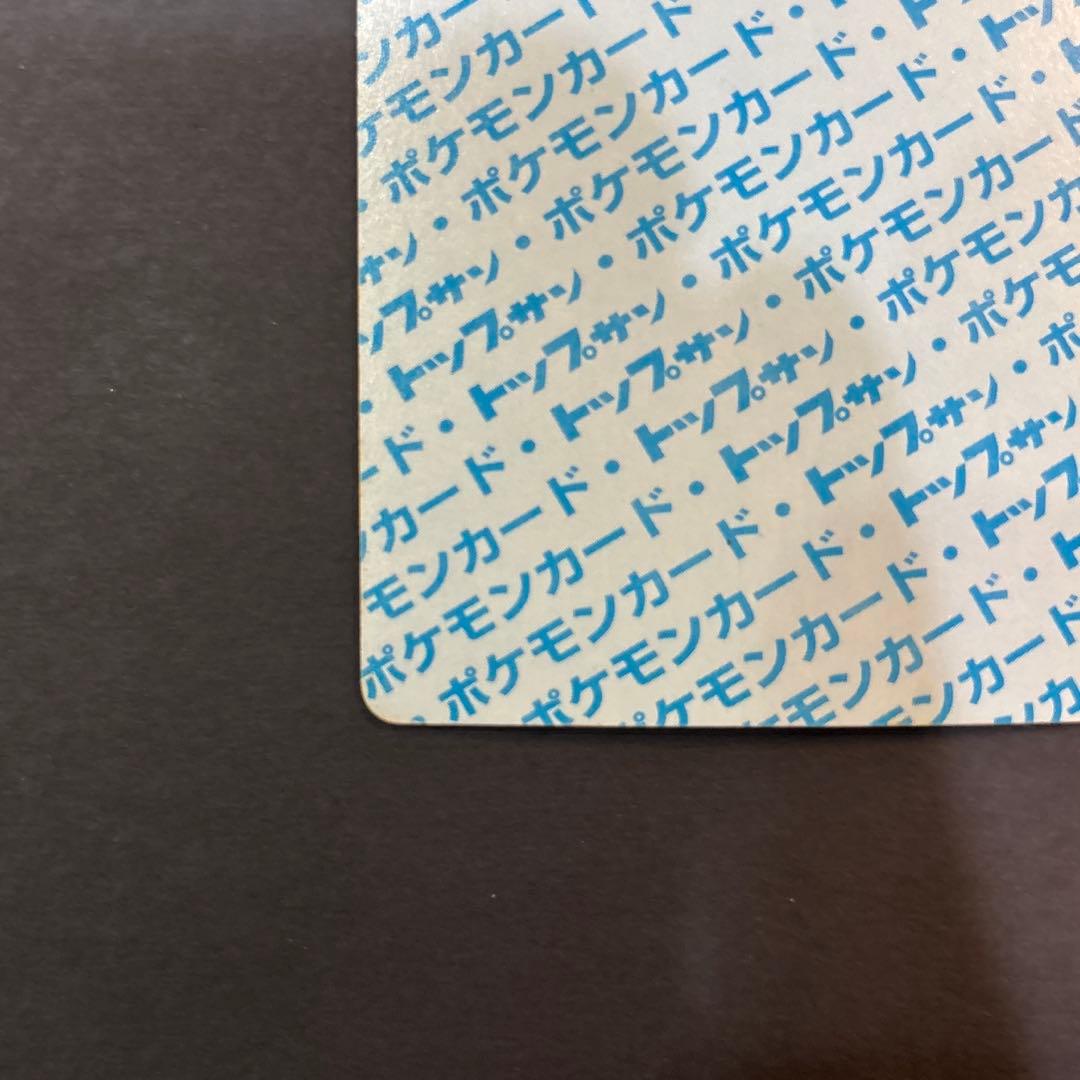 ンカー
ケモンカー
・ポケモンカード
サン・ポケモンカード・
ップサン・ポケモンカード・ト
・トップサン・ポケモンカード・トッ
ード・トップサン・ポケモンカード・ト
ンカード・トップサン・ポケモンカード
モンカード・トップサン・ポケモンカ
ポケモンカード・トップサン・ポケモ
・ポケモンカード・トップサン・ポ
ポケモンカード・トップサン
ポケモンカード・トップ
ケモンカード・ト
モンカード
ンカ